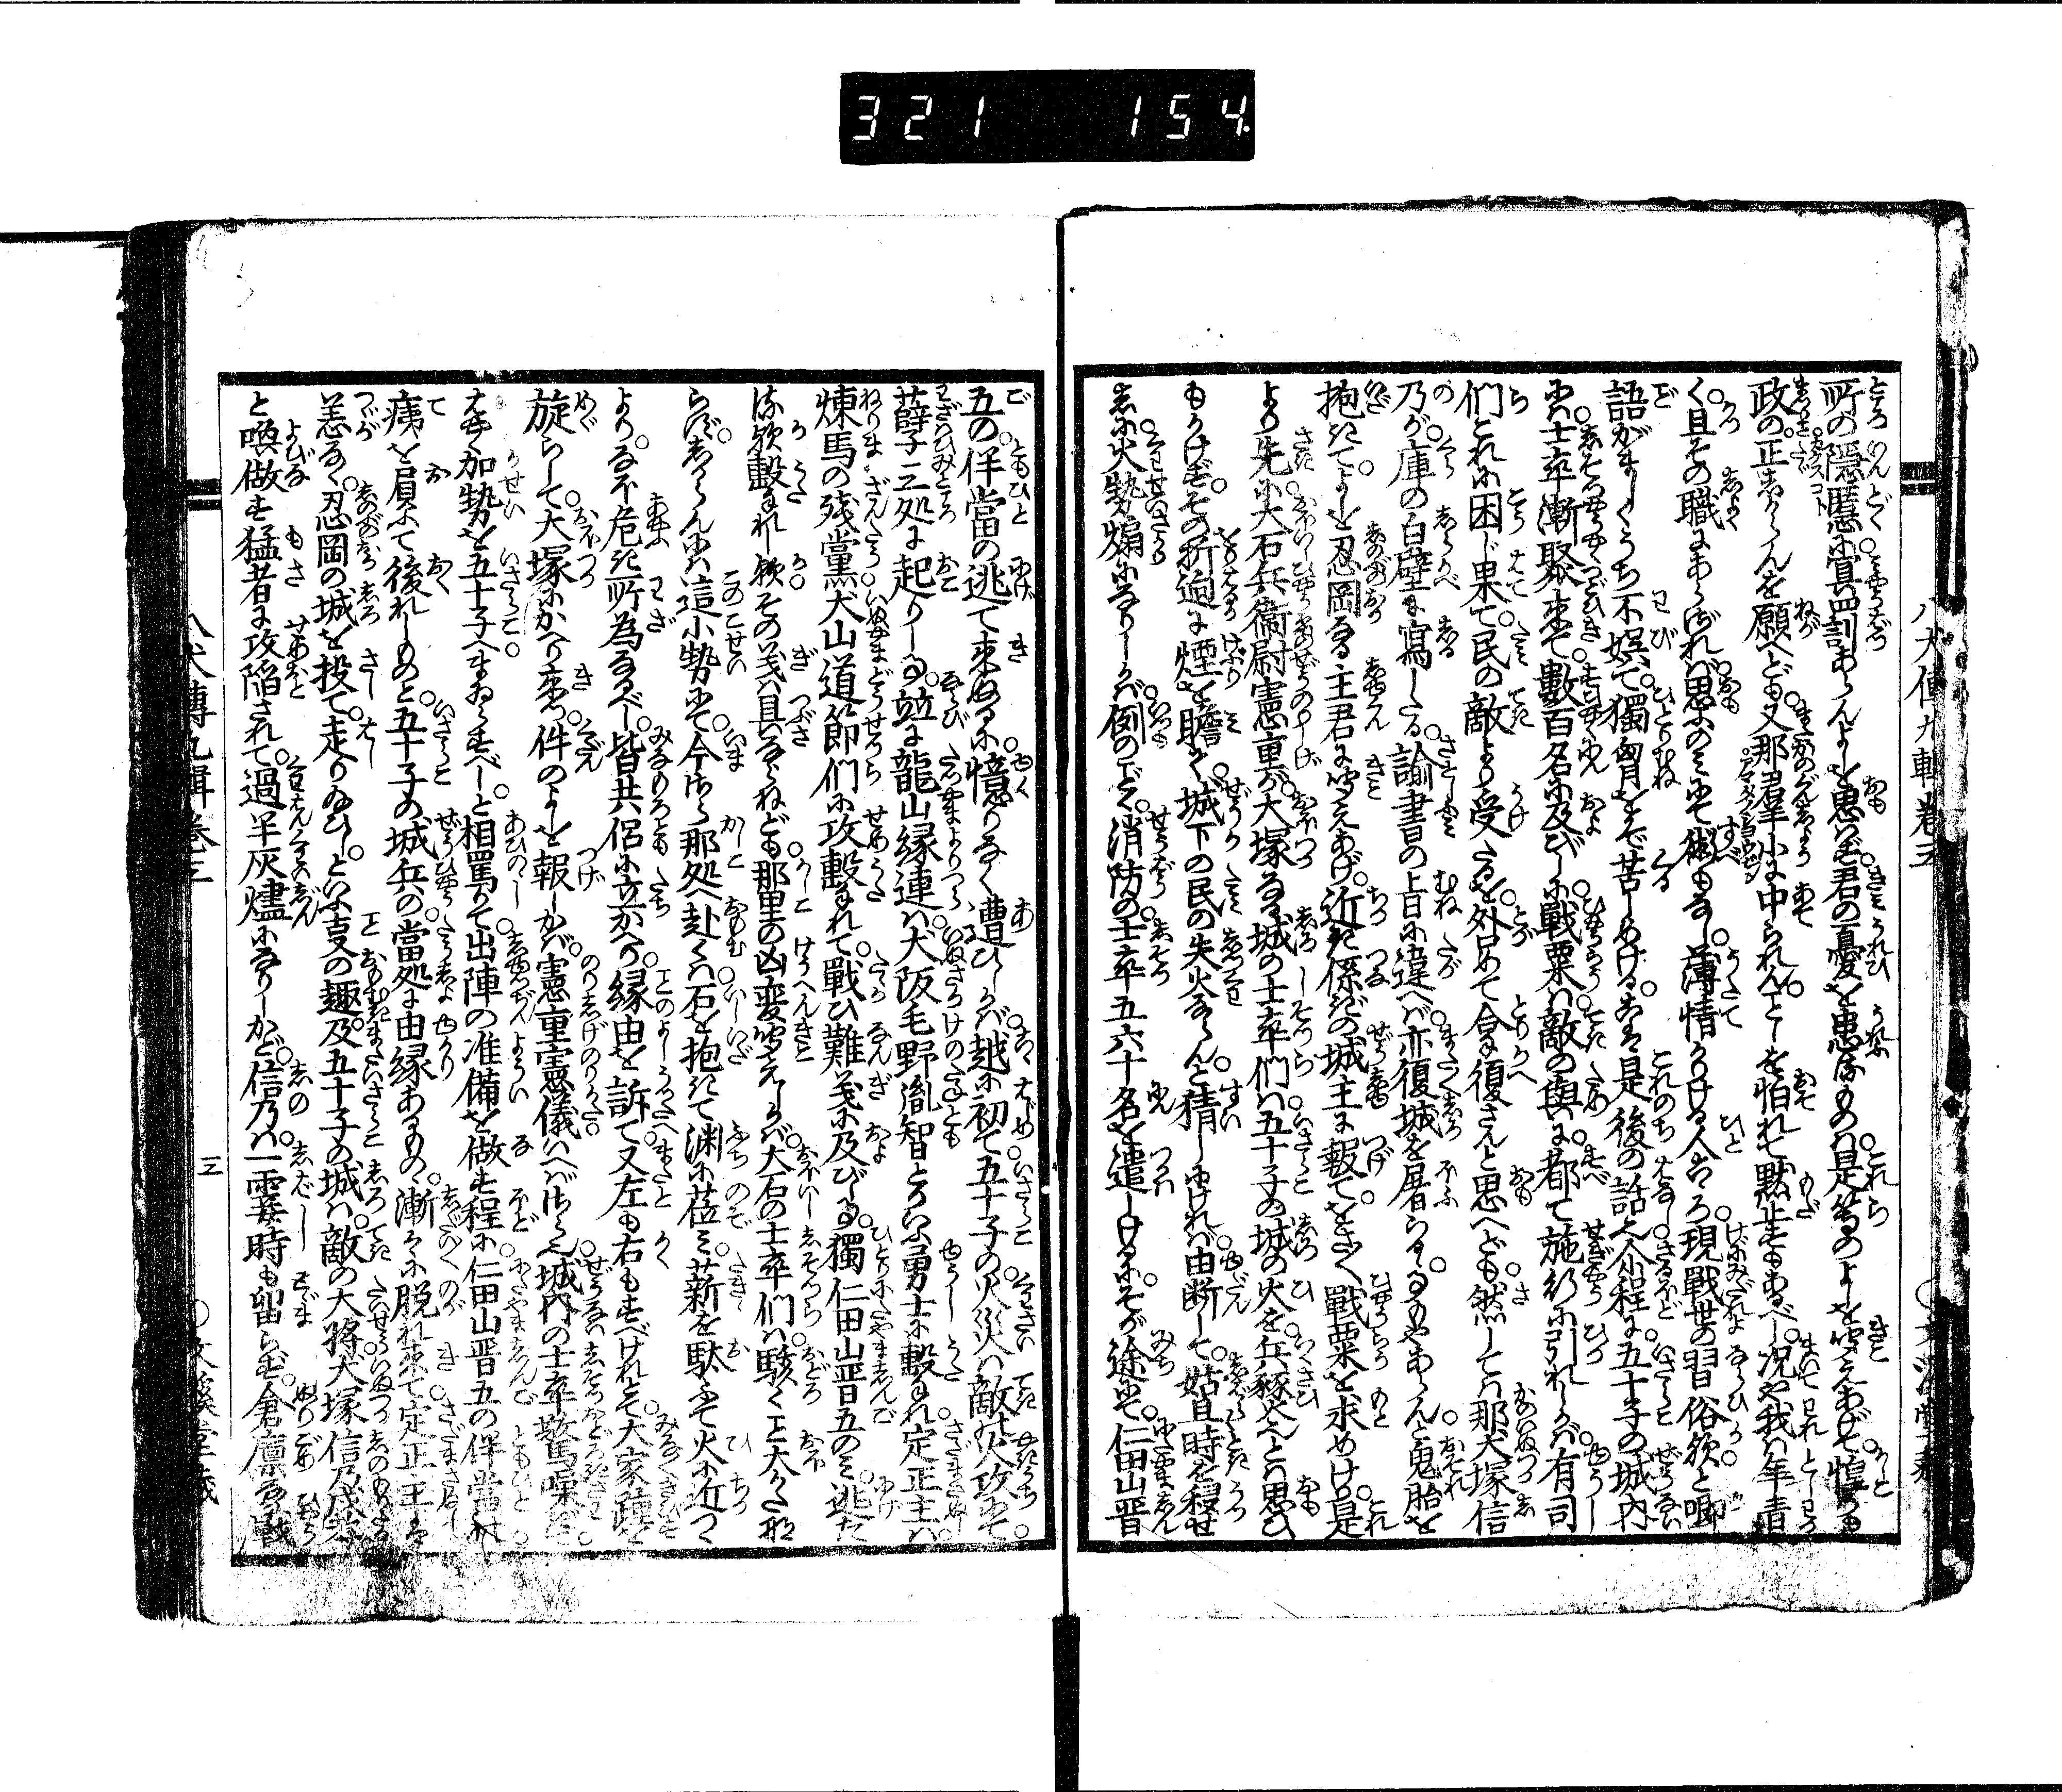 八犬傳九輯卷三
所の隱慝に冥罰あらんよしを思はず君の憂を患ふるものは是等のよしを聞えあげず惶くも
政の正しからんを願へども又那羣小に中られんことを怕れて黙止もあるべし况や我は年青
く且その職にあらざれば思ふのみにて術もなし薄情かりける人こゝろ現戰世の習俗歟と唧
語がましくうち不娯て獨胸をぞ苦しめけるこは是後の話也介程に五十子の城内
には士卒漸聚來て數百名に及びしに戰粟は敵の與に都て施行に引れしが有司
们これに困じ果て民の敵より受たるを外めて拿復さんと思へども然しては那犬塚信
乃が庫の白壁に寫したる諭書の上旨に違へば亦復城を屠らるゝもやあらんと鬼胎を
抱きてよしを忍岡なる主君に聞えあげ近き係ぎの城主に報てをさ〳〵戰粟を求めけり是
より先に大石兵衞尉憲重が大塚なる城の士卒们は五十子の城の火を兵燹とは思ひ
もかけずその折迫に煙を瞻て城下の民の失火ならんと猜しければ由断して姑且時を移せ
しに火勢熾になりしかば例のごとく消防の士卒五六十名を遣しけるにそが途にて仁田山晋
五の伴當の逃て來ぬるに憶りなく遭ひしかば越に初て五十子の火災は敵の火攻にて
孽三処に起りしなる竝に龍山縁連は犬阪毛野胤智とかいふ勇士に撃れ定正主は
煉馬の残黨犬山道節们に攻撃れて戰ひ難義に及びしを獨仁田山晋五のみ逃た
る歟撃れし歟その義は具ならねども那里の凶変聞えしかば大石の士卒们は駭くこと大かたな
らずしからんには這小勢にて今さら那処へ赴くは石を抱きて渊に莅み薪を駄ふて火に近づく
よりなほ危き所為なるべし皆共侶に立かへり縁由を訴て又左も右もすべけれとて大家踵を
旋らして大塚にかへり來つ件のよしを報しかば憲重憲儀はいへばさら也城内の士卒驚噪ぎて
はやく加勢を五十子へまゐらすべしと相罵りて出陣の准備を做す程に仁田山晋五の伴當の
痍を肩ふて後れしものと五十子の城兵の當処に由縁あるもの漸々に脱れ來て定正主は
恙なく忍岡の城を投て走りゐひしといふ支の趣及五十子の城は敵の大將犬塚信乃戍孝
と喚做す猛者に攻陥されて過半灰燼になりしかど信乃は一霎時も留らず倉廩なる戰
八犬傳九輯卷三
三
文溪堂藏